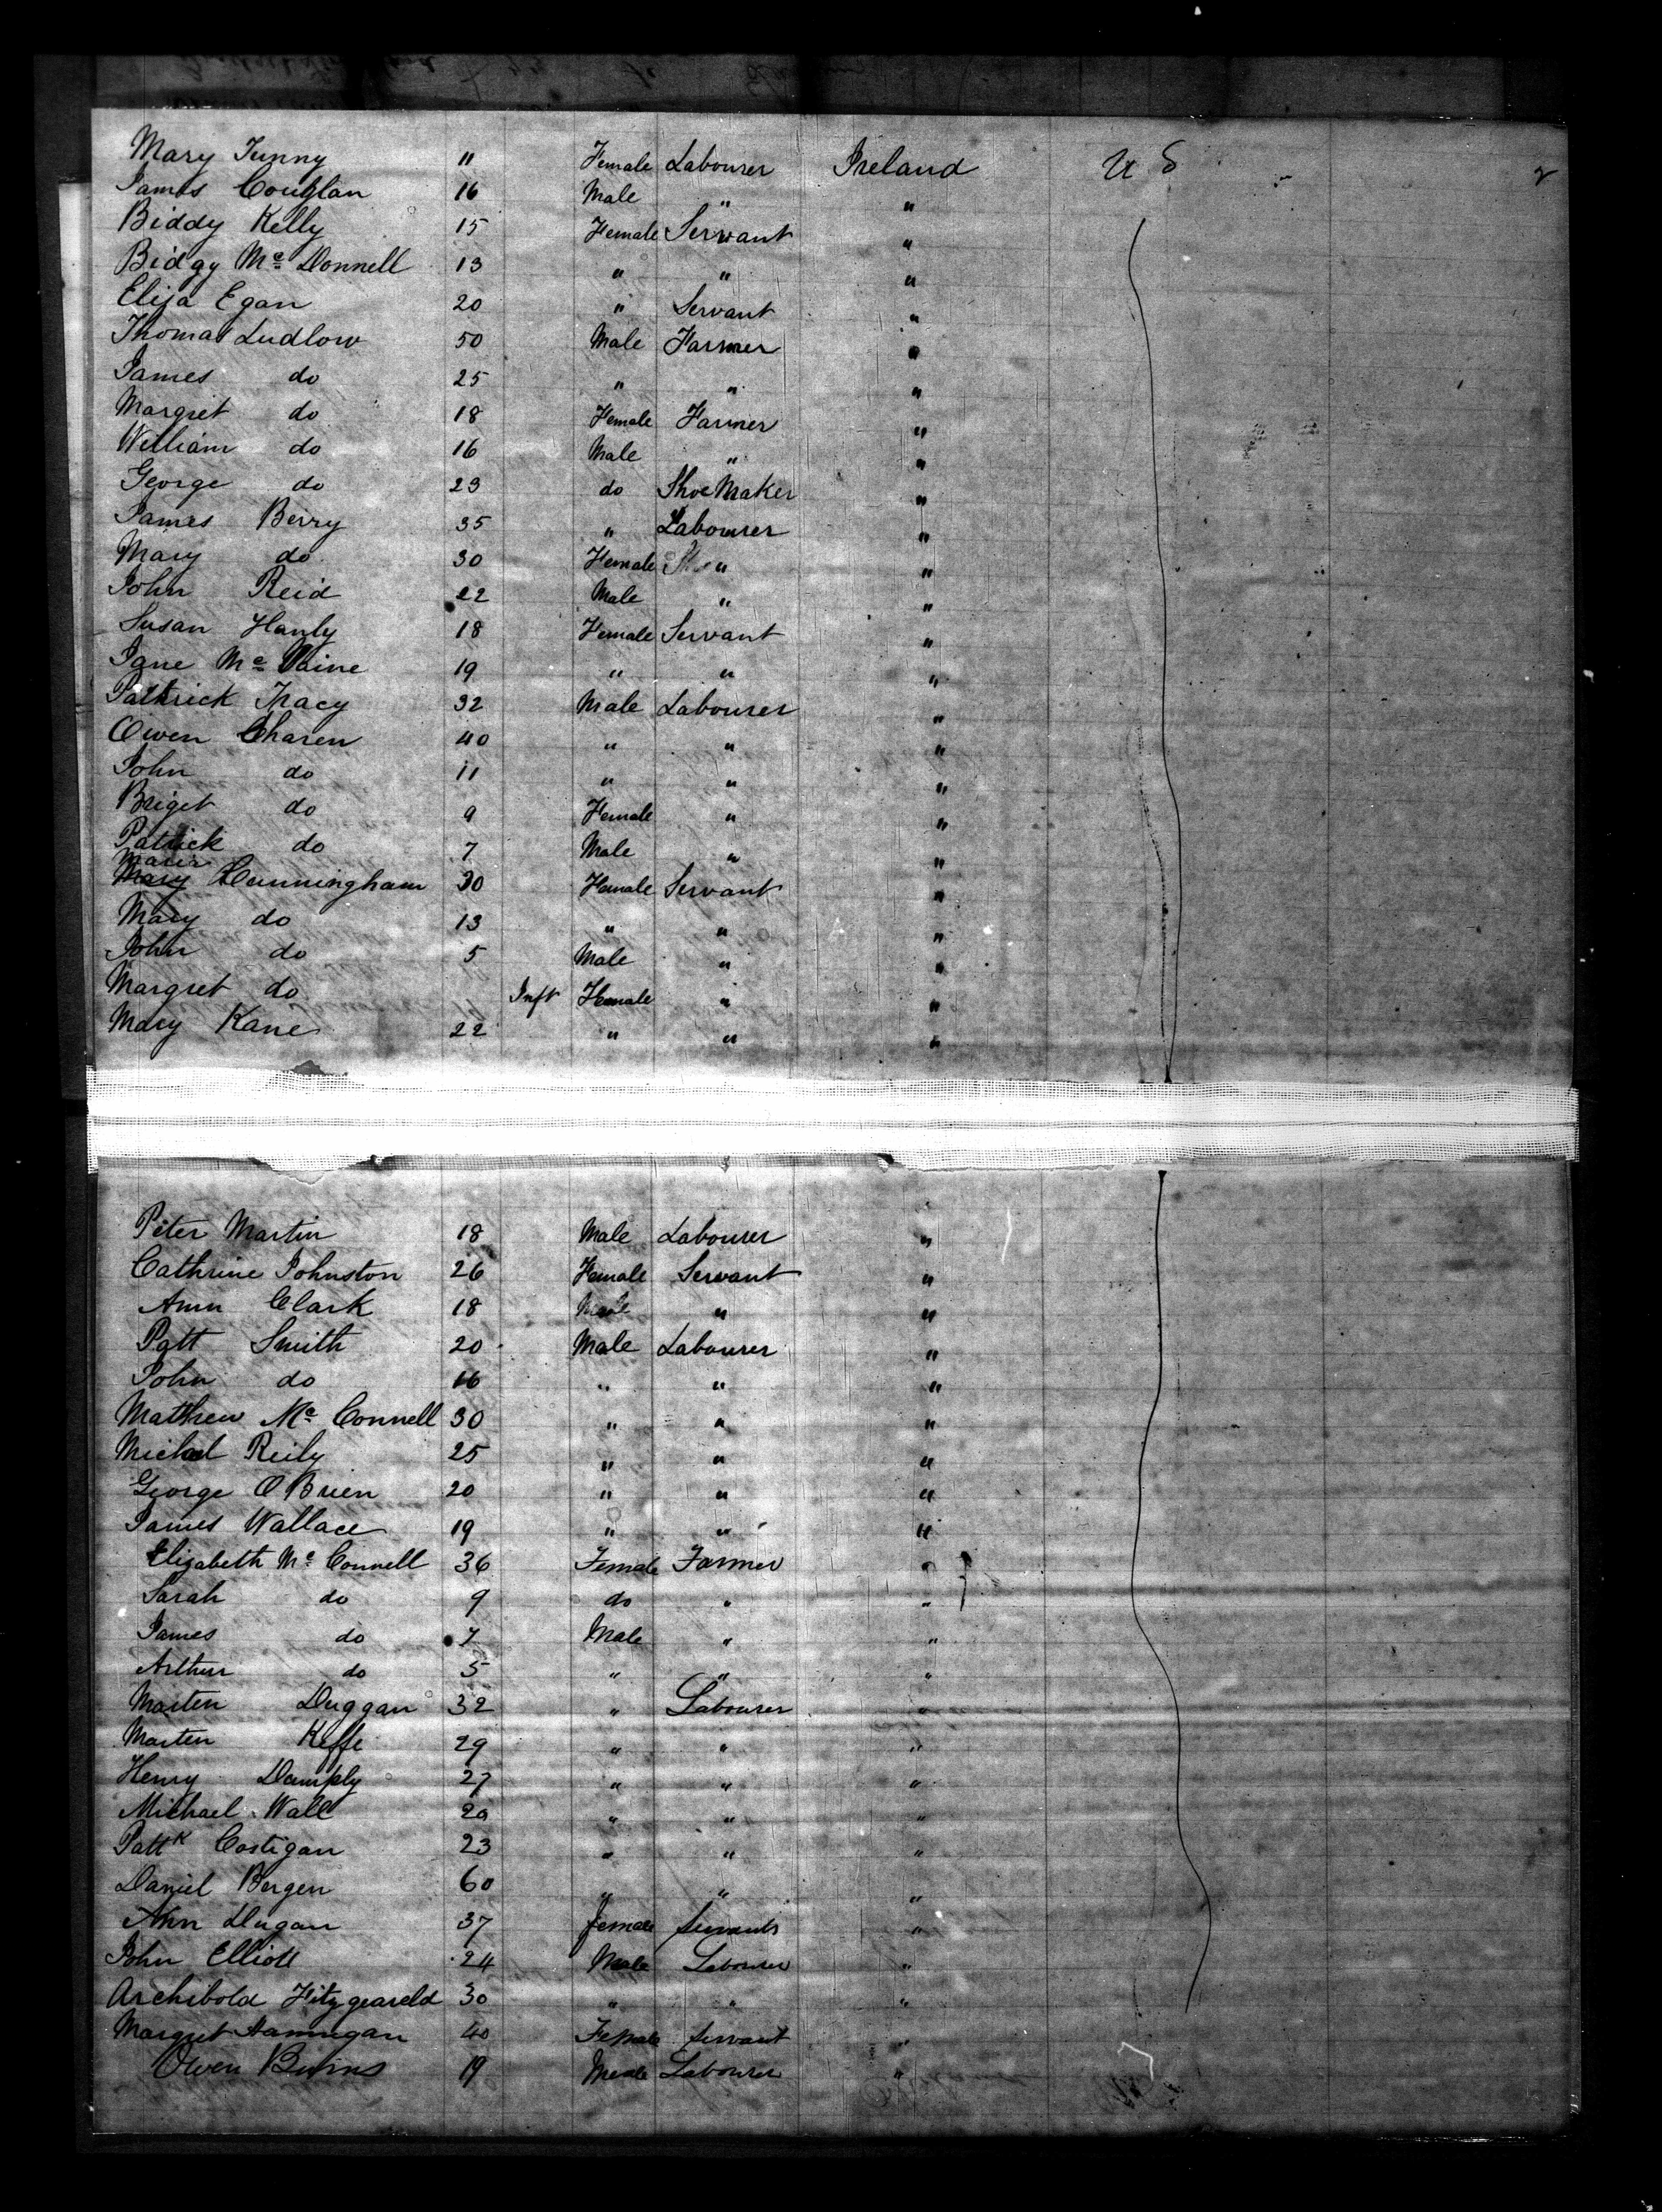 Mary Tunny 11 Female Labourer Ireland U S
James Couglan 16 Male " "
Biddy Kelly 15 Female Servant "
Bidgy Mc Donnell 13 " " "
Eliza Egan 20 " Servant "
Thomas Ludlow 50 Male Farmer "
James do 25 " " "
Margret do 18 Female Farmer "
William do 16 Male " "
George do 23 do Shoe Maker "
James Berry 35 " Labourer "
Mary do 30 Female " "
John Reid 22 Male " "
Susan Hanly 18 Female Servant "
Jane Mc 19 " " "
Pattrick Tracy 32 Male Labourer "
Owen Charen 40 " " "
John do 11 " " "
Briget do 9 Female " "
Patrick do 7 Male " "
Maria
Mary Cunningham 30 Female Servant "
Mary do 13 " " "
John do 5 Male " "
Margret do Inft Female " "
Mary Kane 22 " " "
Peter Martin 18 Male Labourer "
Cathrine Johnston 26 Female Servant "
Ann Clark 18 Male " "
Patt Smith 20 Male Labourer "
John do 16 " " "
Mathew Mc Connell 30 " " "
Michal Reily 25 " " "
George O Brien 20 " " "
James Wallace 19 " " "
Elizabeth Mc Connell 36 Female Farmer "
Sarah do 9 do " "
James do 7 Male " "
Arthur do 5 " " "
Marten Duggan 32 " Labourer "
Marten Keffe 29 " " "
Henry Damply 27 " " "
Michael Wall 20 " " "
Pattk Costigan 23 " " "
Daniel Bergen 60 " " "
Ann Dugan 37 female servants "
John Elliott 24 Male Labourer "
Archibold Fitzgeareld 30 " " "
Margret Hannigan 40 Female servant "
Owen Burns 19 Male Labourer "